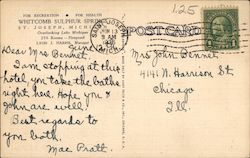 FOR RECREATION • FOR HEALTH
WHITCOMB SULPHUR SPRINGS
ST. JOSEPH, MICH.
Overlooking Lake Michigan
225 Rooms — Fireproof
June
Dear Mrs. Bennet
I am stopping at this
hotel, you take the baths
right here. Hope you &
John are well.
Best regards to
you both.
Mae Pratt.
125
POST CARD
SAINT JOSEPH
JUN 13
9 AM
Mrs John Bennet
4141 N. Harrison St.
Chicago
Ill.